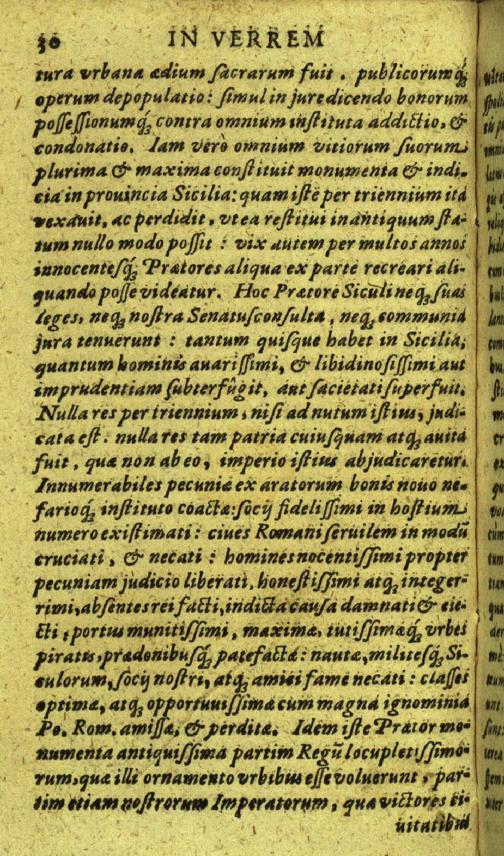 30 IN VERREM
tura vrbana ædium sacrarum fuit. publicorumq́;
operum depopulatio: simul in jure dicendo bonorum
possessionumq́; contra omnium instituta addictio, &
condonatio. Iam verò omnium vitiorum suorum
plurima & maxima constituit monumenta & indi-
cia in prouincia Sicilia: quam iste per triennium ita
vexauit, ac perdidit, vt ea restitui in antiquum sta-
tum nullo modo possit: vix autem per multos annos
innocentesq́; Prætores aliqua ex parte recreari ali-
quando posse videatur. Hoc Prætore Siculi neq; suas
leges, neq; nostra Senatusconsulta, neq; communia
jura tenuerunt: tantum quisque habet in Sicilia,
quantum hominis auarissimi, & libidinosissimi aut
imprudentiam subterfûgit, aut sacietati superfuit.
Nulla res per triennium, nisi ad nutum istius, judi-
cata est. nulla res tam patria cuiusquam atq; auita
fuit, quæ non ab eo, imperio istius abjudicaretur.
Innumerabiles pecuniæ ex aratorum bonis nouo ne-
farioq́; instituto coactæ: socij fidelissimi in hostium
numero existimati: ciues Romani seruilem in modū
cruciati, & necati: homines nocentissimi propter
pecuniam judicio liberati, honestissimi atq; integer-
rimi, absentes rei facti, indicta causa damnati & eie-
cti, portus munitissimi, maximæ, tutissimæq́; vrbes
piratis, prædonibusq́; patefactæ: nautæ, militesq́; Si-
culorum, socij nostri, atq; amici fame necati: classes
optimæ, atq; opportunissimæ cum magna ignominia
Po. Rom. amissæ, & perditæ. Idem iste Prætor mo-
numenta antiquissima partim Regū locupletissimo-
rum, quæ illi ornamento vrbibus esse voluerunt, par-
tim etiam nostrorum Imperatorum, quæ victores ci-
uitatibus